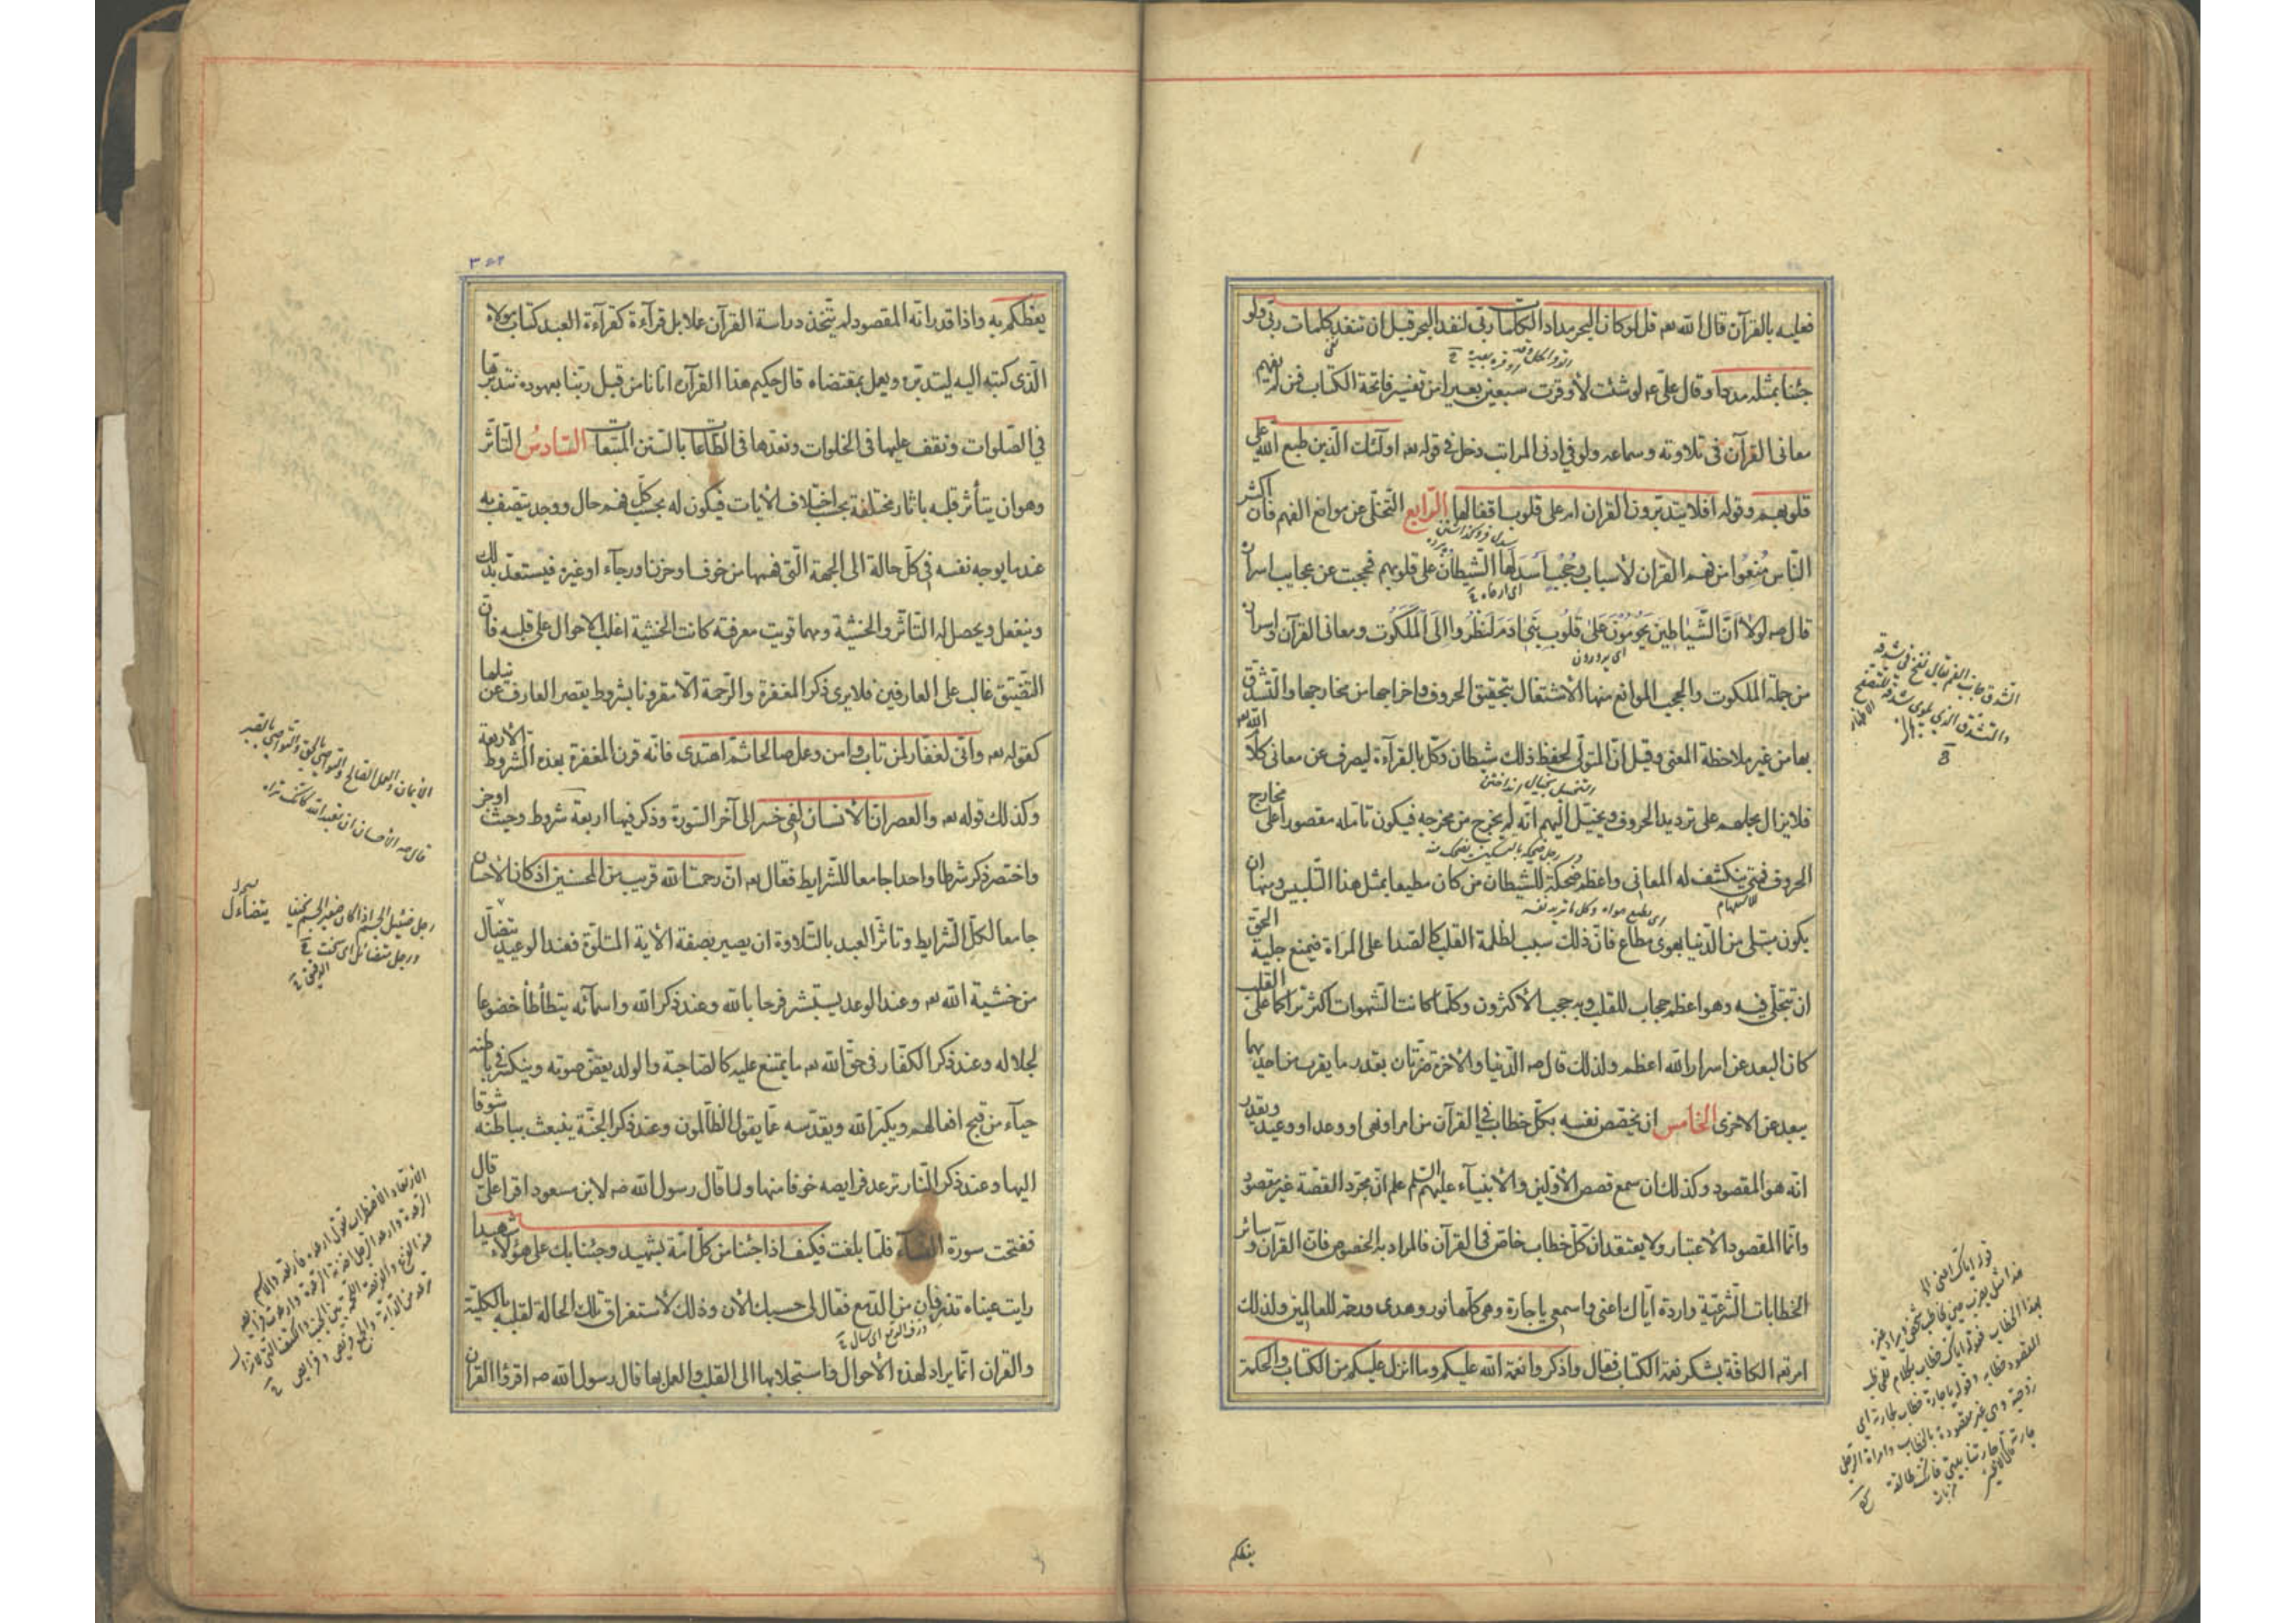 فعليه بالقرآن قال الله تعه قل لو كان البحر مدادا لكلمات ربى لنفد البحر قبل ان تنفد كلمات ربى ولو
جئنا بمثله مددا وقال علىّ عم لو شئت لأوقرت سبعين بعيرا من تفسير فاتحة الكتاب فمن لم يفهم
معانى القرآن فى تلاوته وسماعه ولو فى ادنى المراتب دخل فى قوله تعه اولئك الّذين طبع الله على
قلوبهم وقوله افلا يتدبّرون القران ام على قلوب اقفالها الرّابع التّخلّى عن موانع الفهم فانّ اكثر
النّاس مُنِعُوا من فهم القران لأسباب وحُجُب اَسدَلَها الشّيطان على قلوبهم فحجبت عن عجايب اسراره
قال صه لولا أنَّ الشَّيَاطِين يَحُومُونَ عَلىٰ قُلُوبِ بَنِى اٰدَمَ لَنظَرُوا اِلَى المَلَكُوت ومعانى القرآن واسراره
من جملة الملكوت والحجب الموانع منها الأشتغال بتحقيق الحروف واخراجها من مخارجها والتّشدّق
بها من غير ملاحظة المعنى وقيل انّ المتولّى لحفظ ذلك شيطان وكّل بالقرآءة ليصرف عن معانى كلام الله تعه
فلا يزال يحملهم على ترديد الحروف ويخيّل اليهم انّه لم يخرج من مخرجه فيكون تامله مقصورا على مخارج
الحروف فمتى ينكشف له المعانى واعظم ضحكة للشيطان من كان مطيعا بمثل هذا التّلبيس ومنها ان
يكون مبتلى من الدّنيا بهوى مطاع فانّ ذلك سبب لظلمة القلب كالصّدا على المرآة فيمنع جلية الحقّ
ان تتجلّى فيه وهو اعظم حجاب للقلب وبه حجب الأكثرون وكلّما كانت الشّهوات اكثر تراكما على القلب
كان البعد عن اسرار الله اعظم ولذلك قال صه الدّنيا والأخرة ضرّتان بقدر ما يقرب من احديهما
يبعد عن الاخرى الخامس ان يخصّص نفسه بكلّ خطاب فى القرآن من امر او نهى او وعد او وعيد ويقدر
انّه هو المقصود وكذلك ان سمع قصص الأوّلين والأنبيآء عليهم السّلم علم انّ مجرّد القصّة غير مقصود
وانّما المقصود الأعتبار ولا يعتقد انّ كلّ خطاب خاصّ فى القرآن فالمراد به الخصوص فانّ القرآن وسائر
الخطابات الشّرعيّة واردة ايّاك اعنى واسمعى يا جارة وهى كلّها نور وهدى ورحمة للعالمين ولذلك
امر تعه الكافّة بشكر نعمة الكتاب فقال واذكروا نعمة الله عليكم وما انزل عليكم من الكتاب والحكمة
يعظكم
يعظكم به واذا قدر انّه المقصود لم يتّخذ دراسة القرآن عملا بل قرآءة كقرآءة العبد كتاب مولاه
الّذى كتبه اليه ليتدبّره ويعمل بمقتضاه قال حكيم هذا القرآن اتانا من قبل ربّنا بعهوده نتدبّرها
فى الصّلوات ونقف عليها فى الخلوات ونعدّها فى الطّاعات بالسّنن المتّبعات السّادسُ التّأثّر
وهو ان يتأثّر قلبه باثار مختلفة بحسب اختلاف الأيات فيكون له بحسب كلّ فهم حال ووجد يتّصف به
عند ما يوجه نفسه فى كلّ حالة الى الجهة الّتى فهمها من خوف او حزن او رجآء او غيره فيستعدّ بذلك
وينفعل ويحصل له التّأثّر والخشية ومهما قويت معرفته كانت الخشية اغلب الاحوال على قلبه فانّ
التّضييق غالب على العارفين فلا يرى ذكر المغفرة والرّحمة الّا مقرونا بشروط يقصر العارف عن نيلها
كقوله تعه وانّى لغفّار لمن تاب وامن وعمل صالحا ثمّ اهتدى فانّه قرن المغفرة بهذه الشّروط الأربعة
وكذلك قوله تعه والعصر انّ الأنسان لفى خسر الى آخر السّورة وذكر فيها اربعة شروط وحيث اوجز
واختصر ذكر شرطا واحدا جامعا للشّرايط فقال تعه انّ رحمت الله قريب من المحسنين اذ كان الأحسان
جامعا لكلّ الشّرايط وتأثّر العبد بالتّلاوة ان يصير بصفة الأية المتلوّة فعند الوعيد يتضأّل
من خشية الله تعه وعند الوعد يستبشر فرحا بالله وعند ذكر الله واسمآئه يتطأطأ خضوعا
لجلاله وعند ذكر الكفّار فى حقّ الله تعه ما يمتنع عليه كالصّاحبة والولد يغضّ صوته وينكسر فى باطنه
حيآء من قبح افعالهم ويكبّر الله ويقدّسه عمّا يقول الظّالمون وعند ذكر الجنّة ينبعث بباطنه شوقا
اليها وعند ذكر النّار ترعد فرايصه خوفا منها ولما قال رسول الله صه لابن مسعود اقرا علىّ قال
ففتحت سورة النّسآء فلمّا بلغت فكيف اذا جئنا من كلّ امّة بشهيد وجئنا بك على هؤلاء شهيدا
رايت عيناه تذرفان من الدّمع فقال لى حسبك الأن وذلك لأستغراق تلك الحالة لقلبه بالكليّة
والقران انّما يراد لهذه الأحوال واستجلابها الى القلب والعمل بها قال رسول الله صه اقرؤا القران